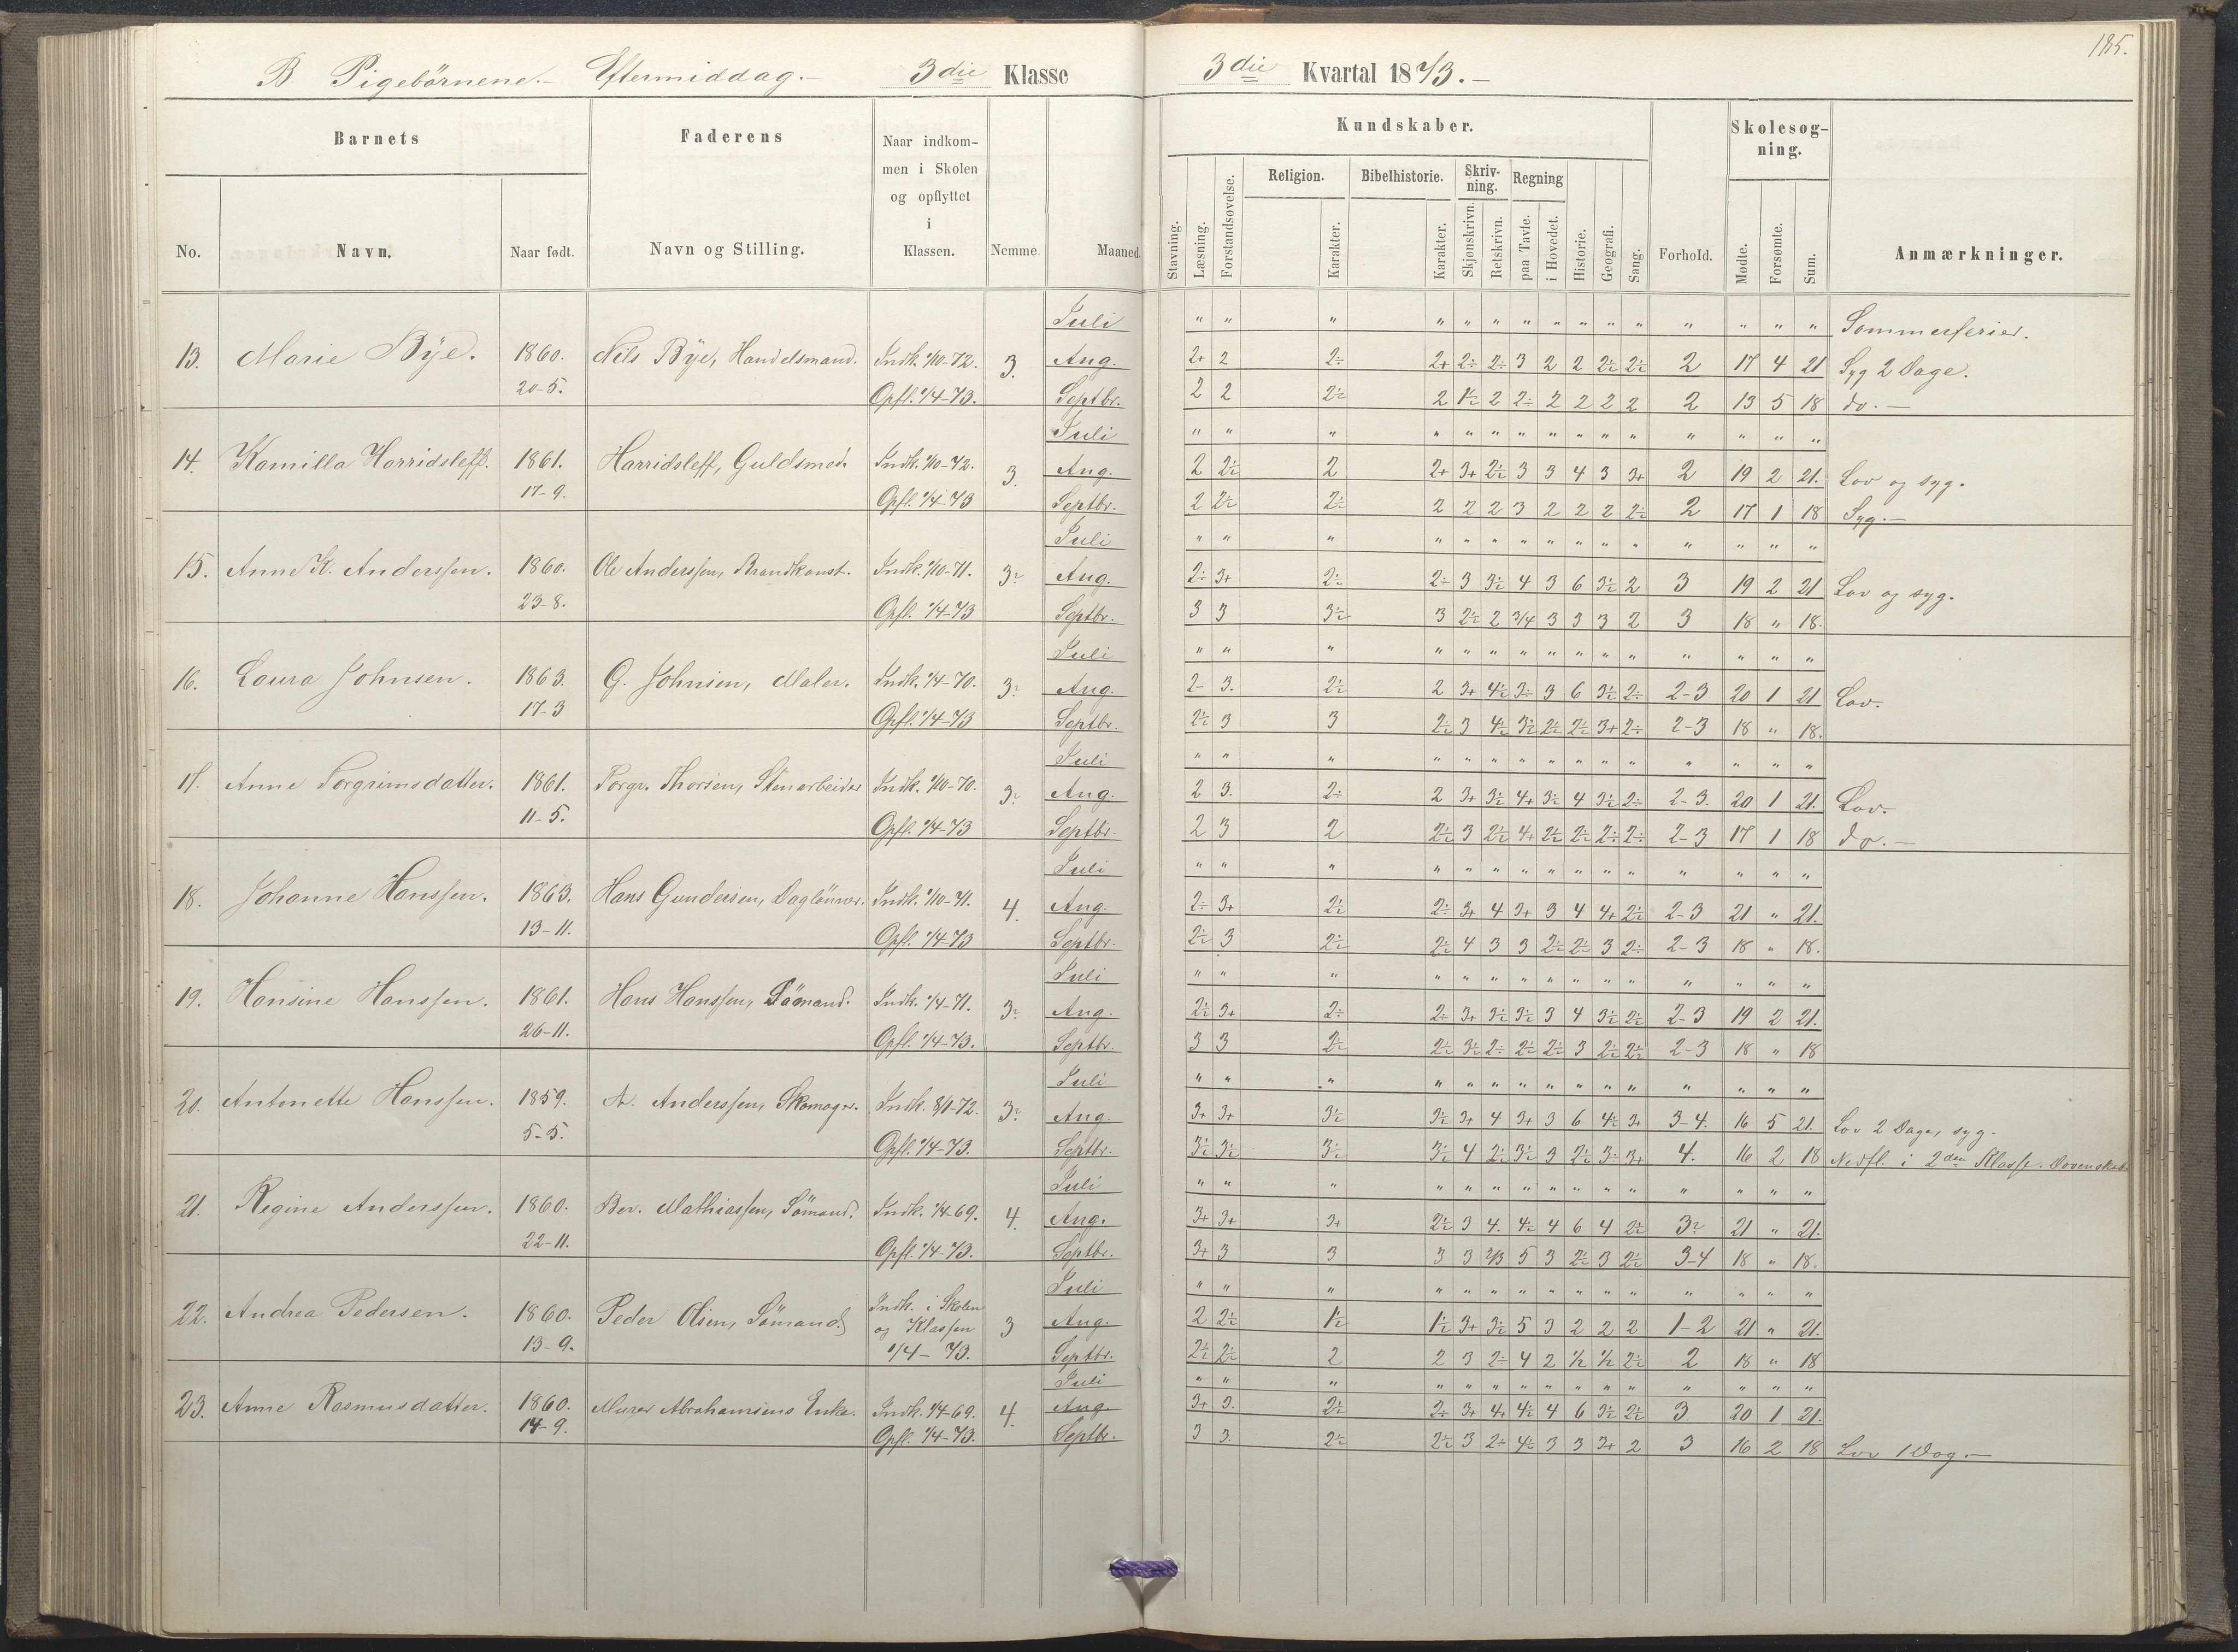 185.
B Pigebörnene.- Eftermiddag.- 3die Klasse 3die Kvartal 1873.-
Barnets Faderens Naar indkommen i Skolen og opflyttet i Klassen. Nemme. Maaned. Kundskaber. Forhold. Skolesøgning. Anmærkninger.
No. Navn. Naar født. Navn og Stilling.
Stavning. Læsning. Forstandsøvelse. Religion. Karakter. Bibelhistorie. Karakter. Skrivning. Skjønskrivn. Retskrivn. Regning paa Tavle. i Hovedet. Historie. Geografi. Sang. Mødte. Forsømte. Sum.
Juli " " " " " " " " " " " " " " " Sommerferier.
13. Marie Bÿe. 1860. Nils Bÿe, Handelsmand. Indk. 1/10-72. 3. Aug. 2+ 2 2÷ 2+ 2÷ 2÷ 3 2 2 2÷ 2÷ 2 17 4 21 Syg 2 Dage.
20-5. Opfl. 1/4-73. Septbr. 2 2 2÷ 2 1÷ 2 2÷ 2 2 2 2 2 13 5 18 do.-
Juli " " " " " " " " " " " " " " "
14. Kamilla Harridsleff. 1861. Harridsleff, Guldsmed. Indk. 1/10-72. 3. Aug. 2 2÷ 2 2+ 3+ 2÷ 3 3 4 3 3+ 2 19 2 21. Lov og syg.
17-9. Opfl. 1/4-73 Septbr. 2 2÷ 2÷ 2 2 2 3 2 2 2 2÷ 2 17 1 18 Syg.-
Juli " " " " " " " " " " " " " " "
15. Anne K. Anderssen. 1860. Ole Anderssen, Brandkonst. Indk. 1/10-71. 3÷ Aug. 2÷ 3+ 2÷ 2÷ 3 3÷ 4 3 6 3÷ 2 3 19 2 21 Lov og syg.
23-8. Opfl. 1/4-73 Septbr. 3 3 3÷ 3 2÷ 2 3/4 3 3 3 2 3 18 " 18.
Juli " " " " " " " " " " " " " " "
16. Laura Johnsen. 1863. G. Johnsen, Maler. Indk. 1/4-70. 3÷ Aug. 2- 3. 2÷ 2 3+ 4÷ 3÷ 3 6 3÷ 2÷ 2-3 20 1 21 Lov.
17-3 Opfl. 1/4-73 Septbr. 2÷ 3 3 2÷ 3 4÷ 3÷ 2÷ 2÷ 3+ 2÷ 2-3 18 " 18.
Juli " " " " " " " " " " " " " " "
17. Anne Torgrimsdatter. 1861. Torgr. Thorsen, Stenarbeider Indk. 1/10-70. 3÷ Aug. 2 3. 2÷ 2 3+ 3÷ 4+ 3÷ 4 3÷ 2÷ 2-3. 20 1 21. Lov.
11-5. Opfl. 1/4-73 Septbr. 2 3 2 2÷ 3 2÷ 4+ 2÷ 2÷ 2÷ 2÷ 2-3 17 1 18 do.-
Juli " " " " " " " " " " " " " " "
18. Johanne Hanssen. 1863. Hans Gundersen, Daglönner. Indk. 1/10-71. 4. Aug. 2÷ 3+ 2÷ 2÷ 3+ 4 3+ 3 4 4+ 2÷ 2-3 21 " 21.
13-11. Opfl. 1/4-73 Septbr. 2÷ 3 2÷ 2÷ 4 3 3 2÷ 2÷ 3 2÷ 2-3 18 " 18.
Juli " " " " " " " " " " " " " " "
19. Hansine Hanssen. 1861. Hans Hanssen, Sömand. Indk. 1/4-71. 3÷ Aug. 2÷ 3+ 2÷ 2÷ 3+ 3÷ 3÷ 3 4 3÷ 2÷ 2-3 19 2 21.
26-11. Opfl. 1/4-73. Septbr. 3 3 2÷ 2÷ 3÷ 2÷ 2÷ 2÷ 3 2÷ 2÷ 2-3 18 " 18
Juli " " " " " " " " " " " " " " "
20. Antonette Hanssen. 1859. A. Anderssen, Skomager. Indk. 8/1-72. 3÷ Aug. 3+ 3+ 3÷ 3÷ 3+ 4 3+ 3 6 4÷ 3+ 3-4. 16 5 21. Lov 2 Dage, syg.
5-5. Opfl. 1/4-73. Septbr. 3÷ 3÷ 3÷ 3÷ 4 2÷ 3÷ 3 2÷ 3÷ 3+ 4. 16 2 18 Nedfl. i 2den Klasse. Dovenskab
Juli " " " " " " " " " " " " " " "
21. Regine Anderssen. 1860. Ber. Mathiassen, Sömand. Indk. 1/4-69. 4. Aug. 3+ 3+ 3+ 2÷ 3 4. 4÷ 4 6 4 2÷ 3÷ 21 " 21.
22-11. Opfl. 1/4-73. Septbr. 3+ 3 3 3 3 2/3 5 3 2÷ 3 2÷ 3-4 18 " 18.
Juli " " " " " " " " " " " " " " "
22. Andrea Pedersen. 1860. Peder Olsen, Sömand. Indk. i Skolen og Klassen 3 Aug. 2 2÷ 1÷ 1÷ 3+ 3÷ 5 3 2 2 2 1-2 21 " 21.
13-9. 1/4-73. Septbr. 2÷ 2÷ 2 2 3 2÷ 4 2 1/2 1/2 2÷ 2 18 " 18
Juli " " " " " " " " " " " " " " "
23. Anne Rasmusdatter. 1860. Murer Abrahamsens Enke. Indk. 1/4-69. 4. Aug. 3+ 3. 2÷ 2÷ 3+ 4+ 4÷ 4 6 3÷ 2÷ 3 20 1 21.
14-9. Opfl. 1/4-73. Septbr. 3 3. 2÷ 2÷ 3 2÷ 4÷ 3 3 3+ 2 3 16 2 18 Lov 1 Dag.-